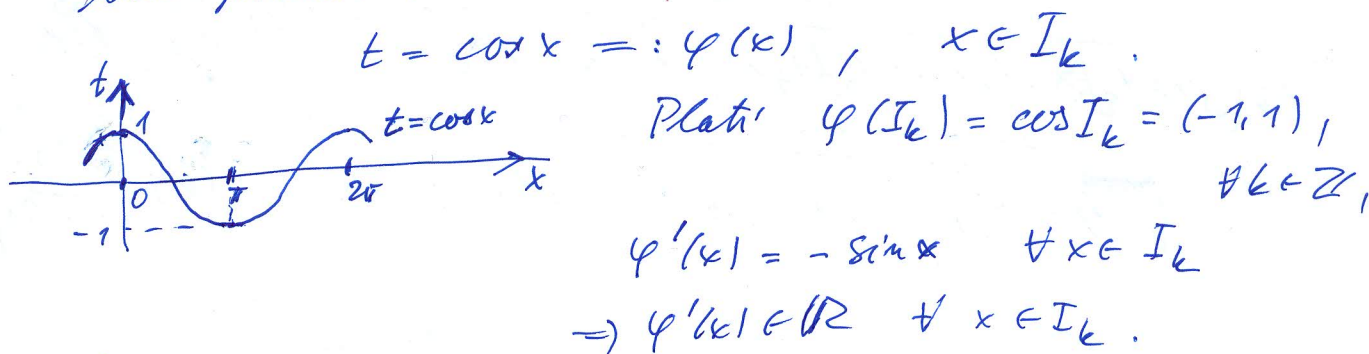 t = cos x =: φ(x) , x ∈ I_k .
t
1
t = cos x
0
π
2π
x
-1
Platí φ(I_k) = cos I_k = (-1, 1) ,
∀ k ∈ ℤ,
φ'(x) = - sin x ∀ x ∈ I_k
⇒ φ'(x) ∈ ℝ ∀ x ∈ I_k .